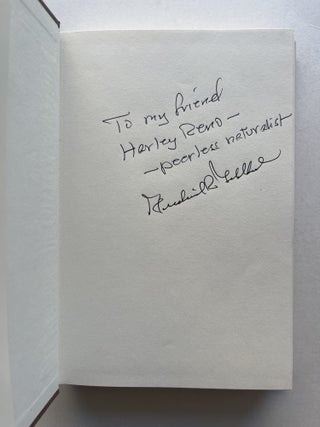 To my friend
Harley Reno -
- peerless naturalist